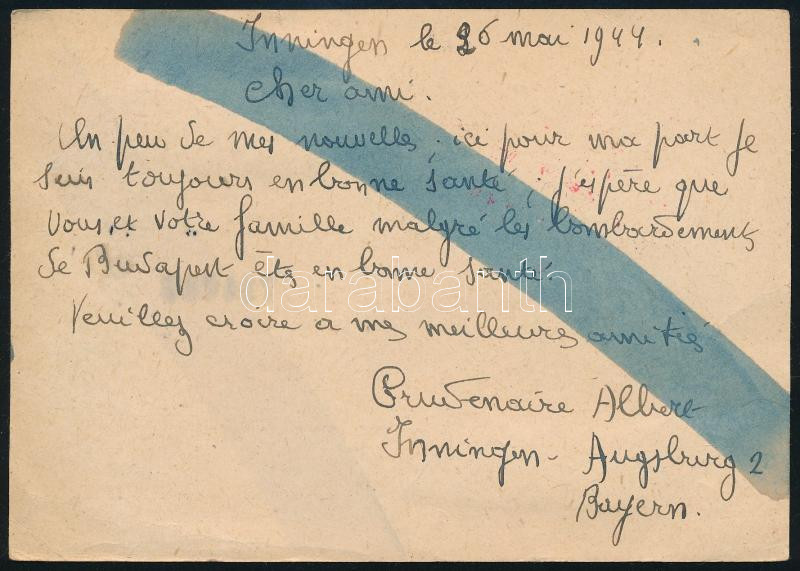 Inningen le 26 mai 1944.
Cher ami.
Un peu de mes nouvelles. ici pour ma part je
suis toujours en bonne santé. j'espère que
vous et votre famille malgré les bombardements
de Budapest êtes en bonne santé.
darabanth
Veuillez croire a mes meilleures amitiés
Prudenaire Albert
Inningen - Augsburg 2
Bayern.